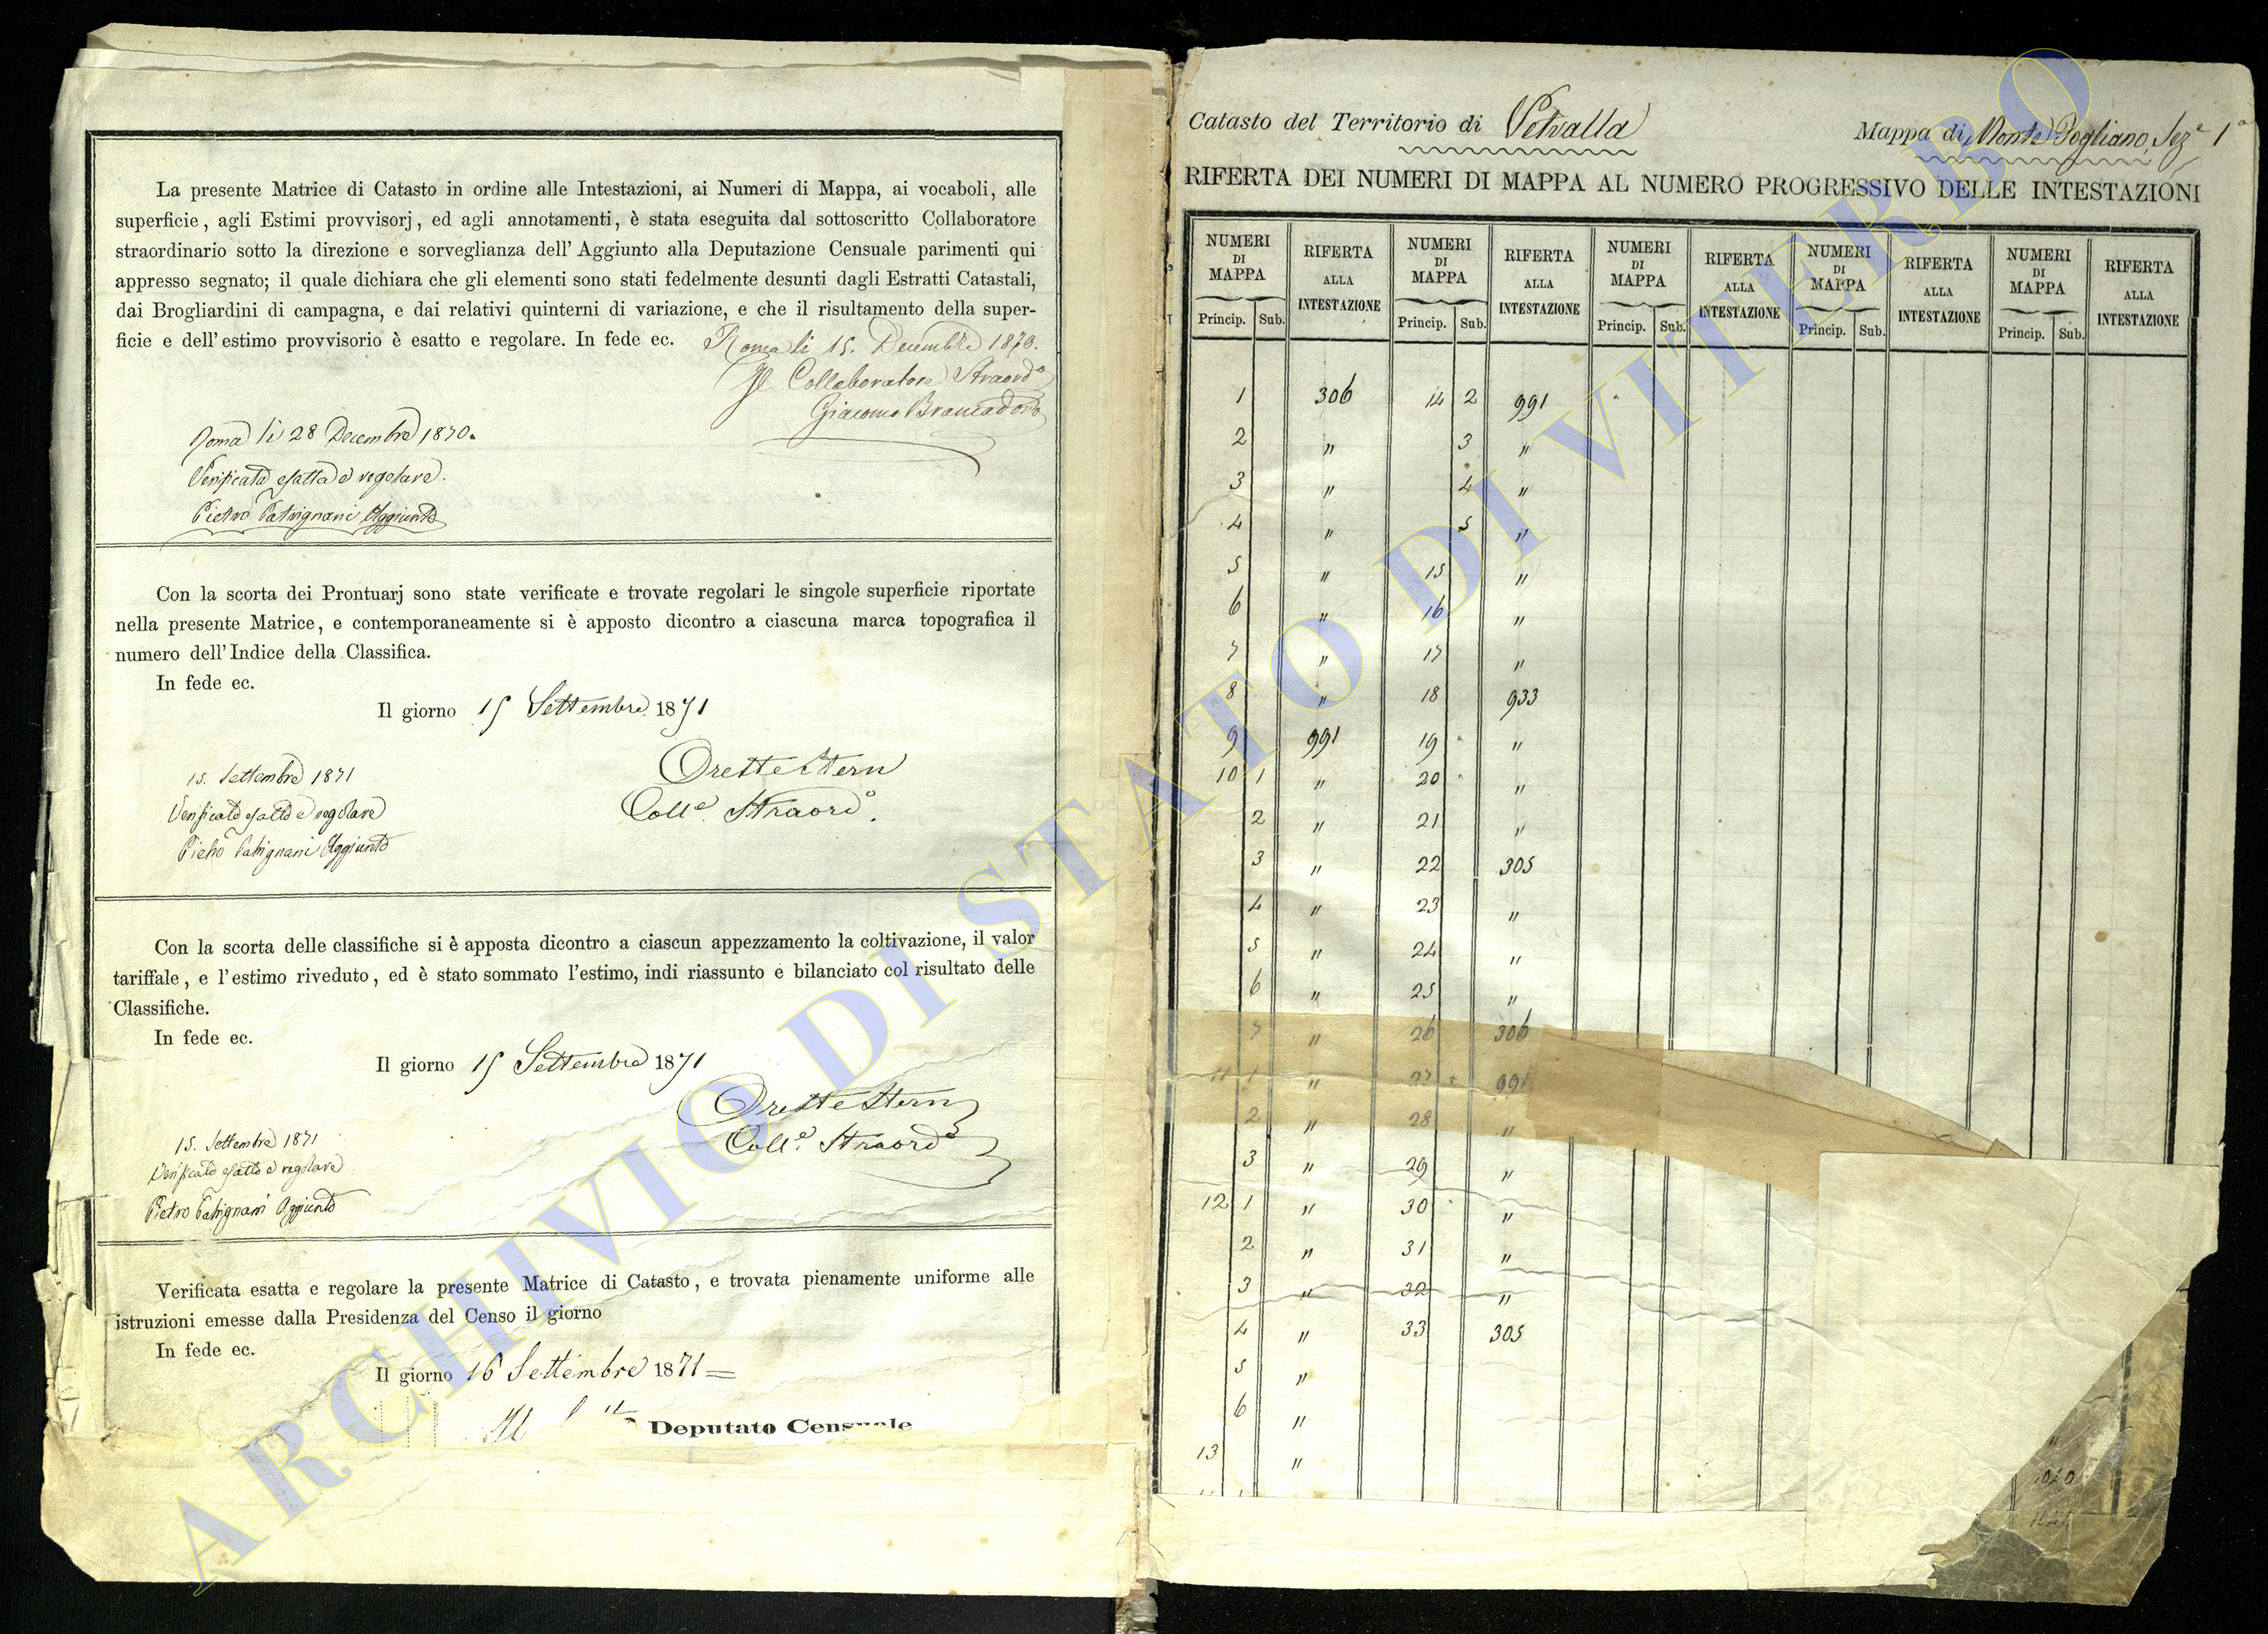 La presente Matrice di Catasto in ordine alle Intestazioni, ai Numeri di Mappa, ai vocaboli, alle
superficie, agli Estimi provvisorj, ed agli annotamenti, è stata eseguita dal sottoscritto Collaboratore
straordinario sotto la direzione e sorveglianza dell' Aggiunto alla Deputazione Censuale parimenti qui
appresso segnato; il quale dichiara che gli elementi sono stati fedelmente desunti dagli Estratti Catastali,
dai Brogliardini di campagna, e dai relativi quinterni di variazione, e che il risultamento della super-
ficie e dell' estimo provvisorio è esatto e regolare. In fede ec. Roma li 15. Decembre 1870.
Il Collaboratore Straordo
Giacomo Brancadoro
Roma li 28 Decembre 1870.
Verificata esatta e regolare.
Pietro Patrignani Aggiunto
Con la scorta dei Prontuarj sono state verificate e trovate regolari le singole superficie riportate
nella presente Matrice, e contemporaneamente si è apposto dicontro a ciascuna marca topografica il
numero dell' Indice della Classifica.
In fede ec.
Il giorno 15 Settembre 1871
Oreste Stern
Colle. Straordo.
15. Settembre 1871
Verificato esatto e regolare
Pietro Patrignani Aggiunto
Con la scorta delle classifiche si è apposta dicontro a ciascun appezzamento la coltivazione, il valor
tariffale, e l'estimo riveduto, ed è stato sommato l'estimo, indi riassunto e bilanciato col risultato delle
Classifiche.
In fede ec.
Il giorno 15 Settembre 1871
Oreste Stern
Colle. Straordo
15. Settembre 1871
Verificato esatto e regolare
Pietro Patrignani Aggiunto
Verificata esatta e regolare la presente Matrice di Catasto, e trovata pienamente uniforme alle
istruzioni emesse dalla Presidenza del Censo il giorno
In fede ec.
Il giorno 16 Settembre 1871 =
Deputato Censuale
Catasto del Territorio di Vetralla Mappa di Monte Fogliano, Seze 1a
RIFERTA DEI NUMERI DI MAPPA AL NUMERO PROGRESSIVO DELLE INTESTAZIONI
NUMERI DI MAPPA RIFERTA ALLA INTESTAZIONE NUMERI DI MAPPA RIFERTA ALLA INTESTAZIONE NUMERI DI MAPPA RIFERTA ALLA INTESTAZIONE NUMERI DI MAPPA RIFERTA ALLA INTESTAZIONE NUMERI DI MAPPA RIFERTA ALLA INTESTAZIONE
Princip. Sub. Princip. Sub. Princip. Sub. Princip. Sub. Princip. Sub.
1 306 14 2 991
2 " 3 "
3 " 4 "
4 " 5 "
5 " 15 "
6 " 16 "
7 " 17 "
8 " 18 933
9 991 19 "
10 1 " 20 "
2 " 21 "
3 " 22 305
4 " 23 "
5 " 24 "
6 " 25 "
7 " 26 306
11 1 " 27 991
2 " 28 "
3 " 29 "
12 1 " 30 "
2 " 31 "
3 " 32 "
4 " 33 305
5 "
6 "
13 "
ARCHIVIO DI STATO DI VITERBO